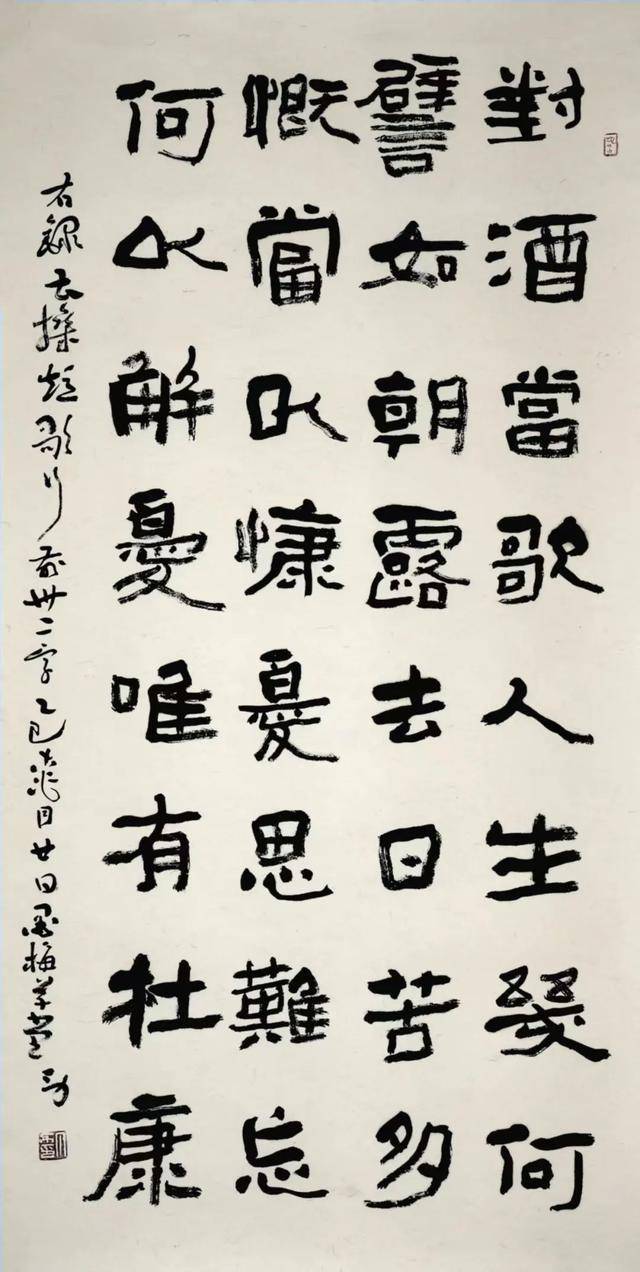 對酒當歌人生幾何
譬如朝露去日苦多
慨當以慷憂思難忘
何以解憂唯有杜康
右錄曹操短歌行前卅二字乙巳桃月廿日墨梅草堂